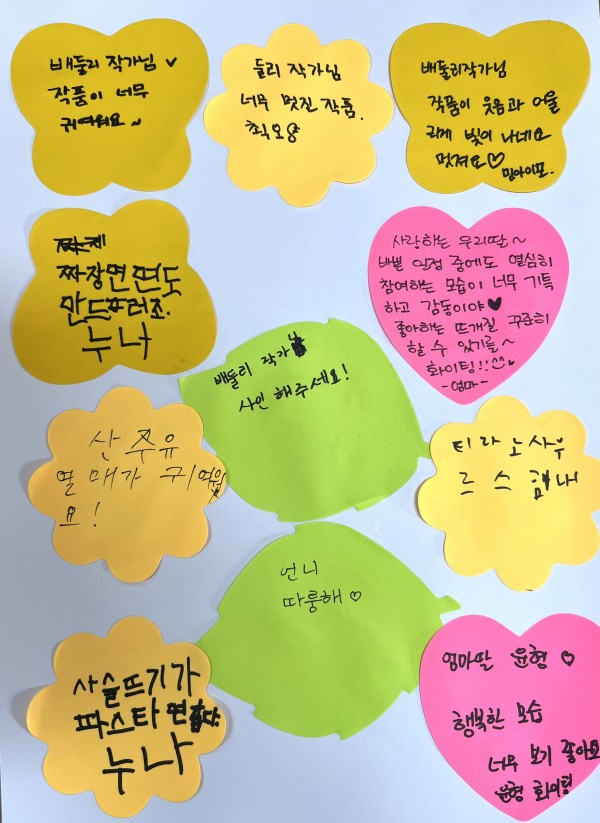 배둘리 작가님 ♥
작품이 너무
귀여워요~
둘리 작가님
너무 멋진 작품.
최오양
배둘리작가님
작품이 웃음과 어울
리게 빛이 나네요
멋져요♡
밍아이포.
짜장면면도
만드러조.
누나
사랑하는 우리딸~
바쁜 일정 중에도 열심히
참여하는 모습이 너무 기특
하고 감동이야♥
좋아하는 뜨개질 꾸준히
할 수 있기를~
화이팅!!^^
-엄마-
배둘리 작가님
사인 해주세요!
산 주유
열매가 귀여워
요!
티라노사우
르스 힘내
언니
따룽해♡
사슬뜨기가
파스타면
누나
엄마딸 윤형 ♡
행복한 모습
너무 보기 좋아요
윤형 화이팅